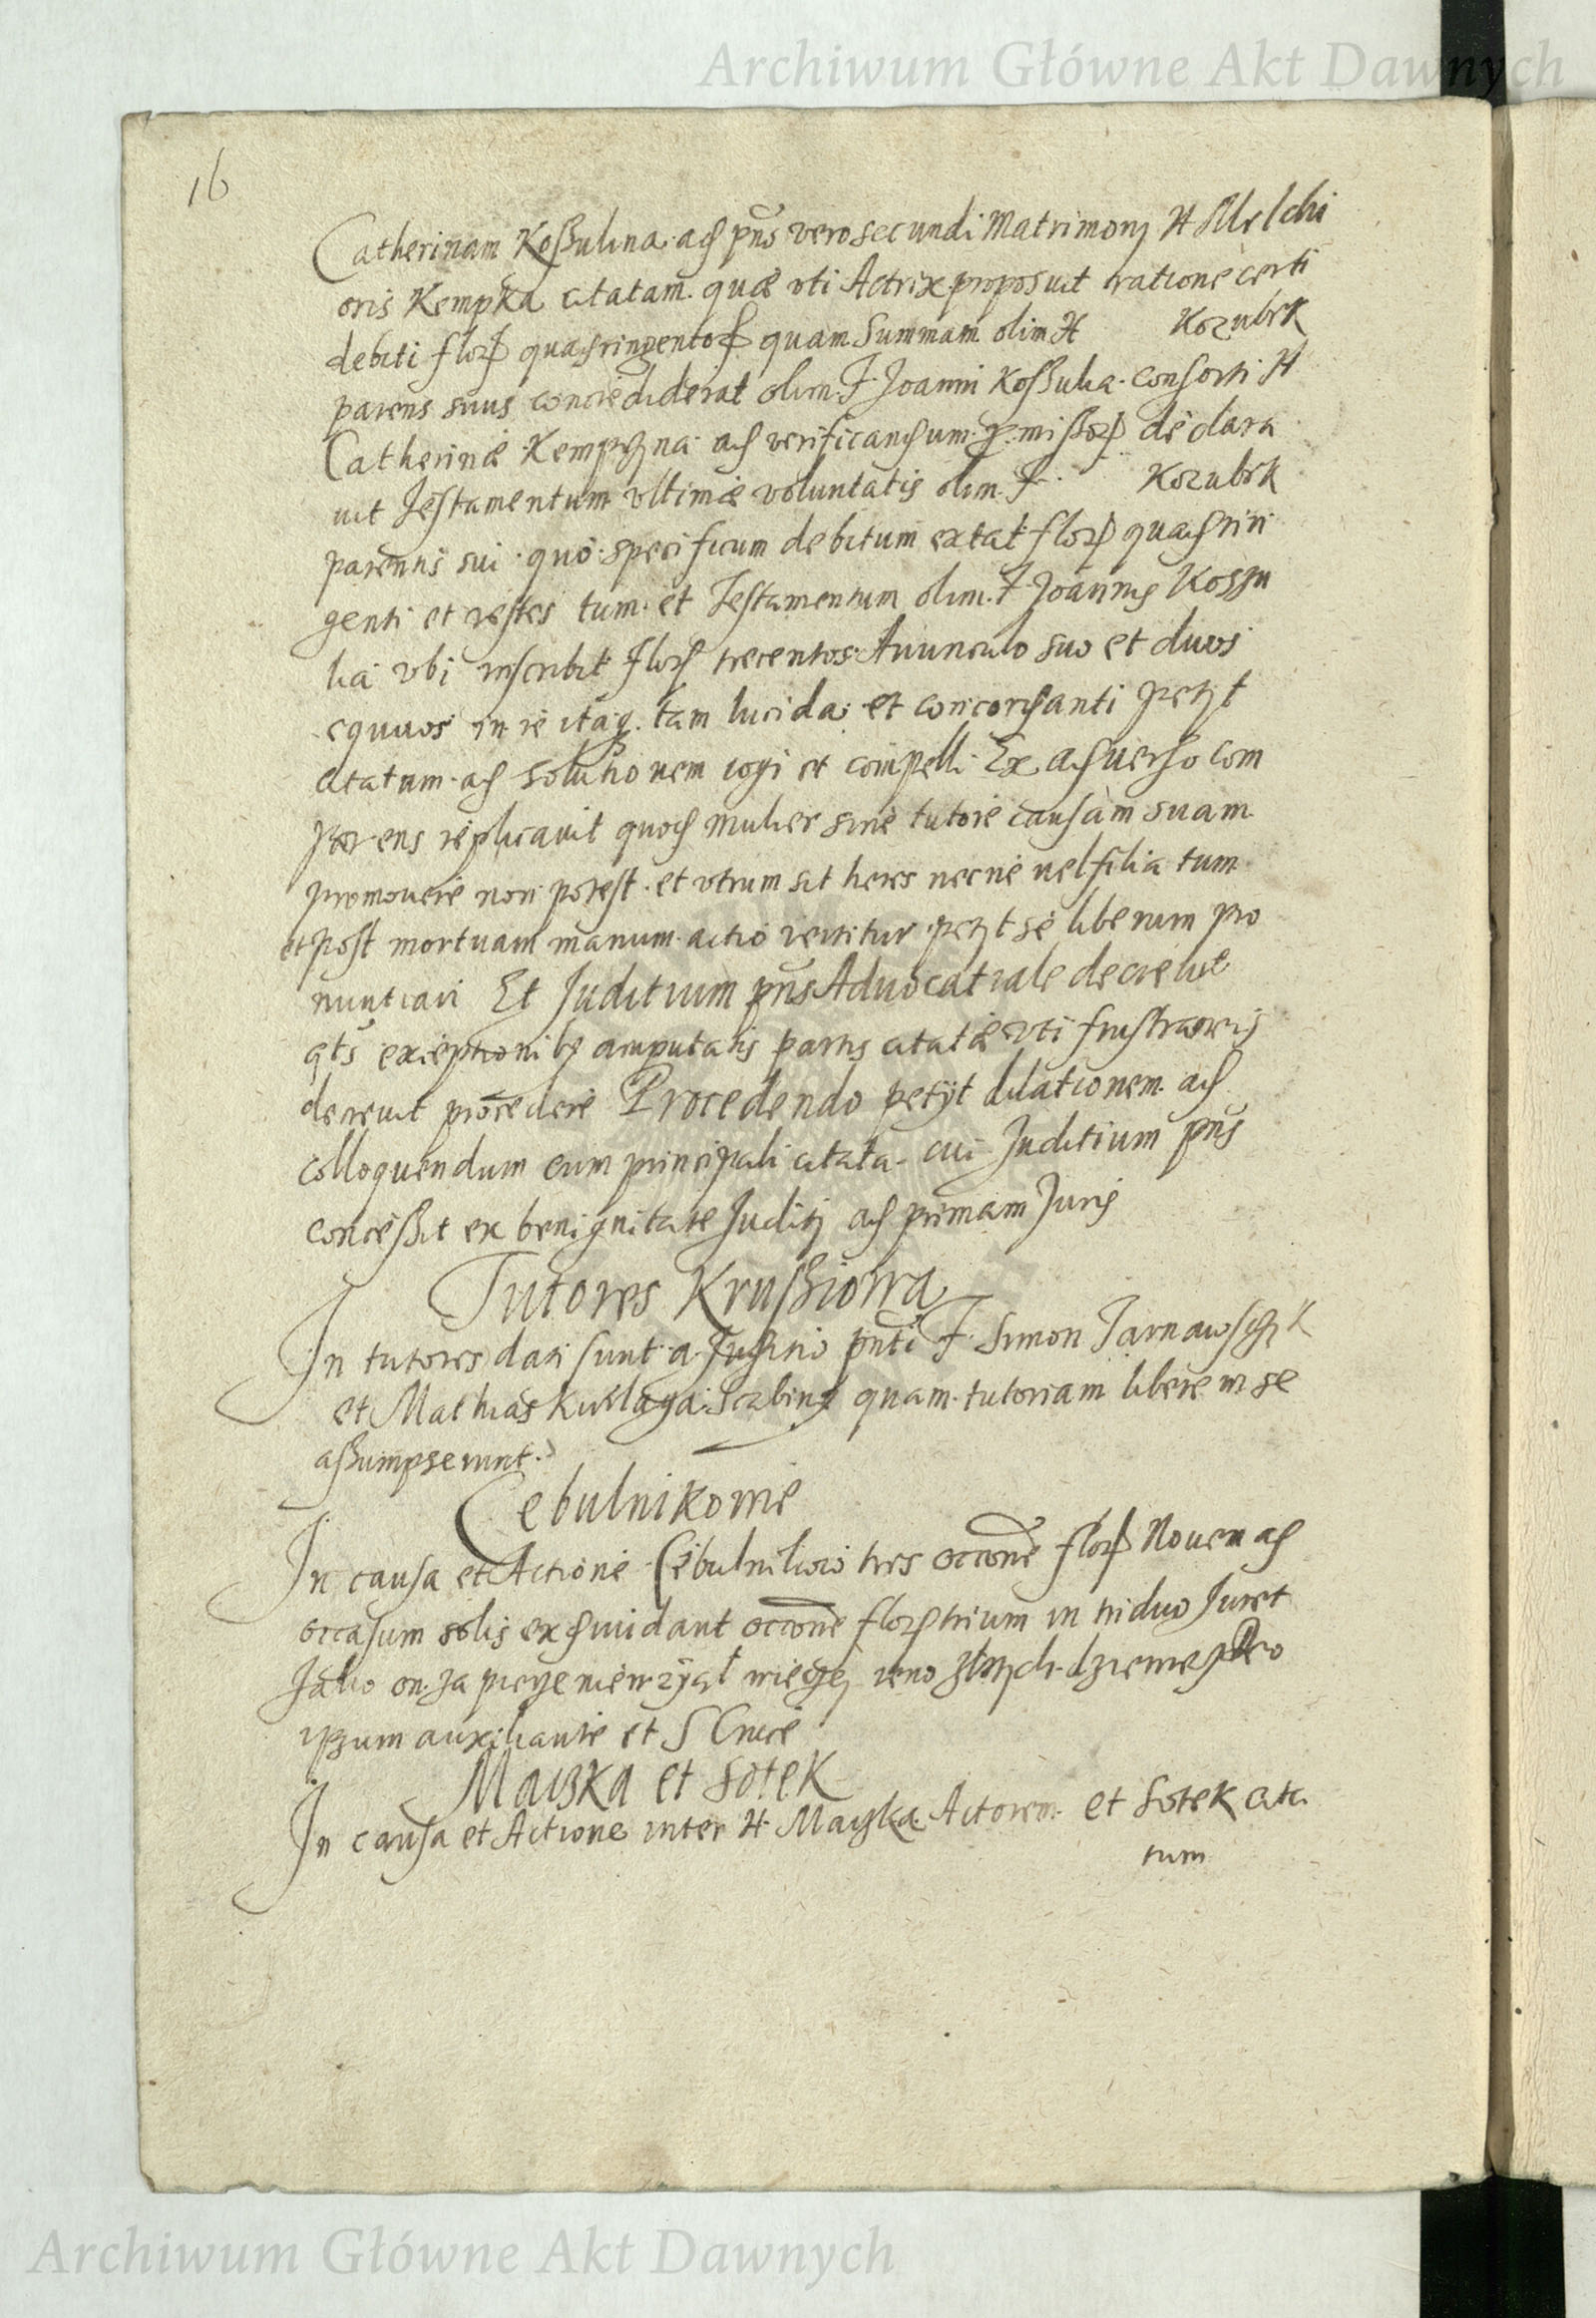 Archiwum Główne Akt Dawnych
16
Catherinam Koßulina ad pñs vero secundi Matrimonj H Melchi
oris Kempka citatam. quæ vti Actrix proposuit ratione certi
debiti flor quadringentor quam Summam olim H Kozubek
parens suus concrediderat olim F Joanni Koßulia consorti H
Catherinæ Kempczyna ad verificandum p.mißor declara
uit Testamentum vltimæ voluntatis olim F. Kozubek
parentis sui quo specificum debitum extat flor quadrin
genti et testes tum et Testamentum olim F Joannis Koszu
lia vbi inscribit Flor trecentos Auunculo suo et duos
equuos in re itaq. tam lucida et concordanti petyt
citatum ad solutionem cogi et compelli Ex aduerso com
parens replicauit quod mulier sine tutore causam suam
promouere non potest et vtrum sit heres necne uel filia tum
et post mortuam manum actio vertitur petyt se liberum pro
nuntiari Et Juditium pñs Aduocatiale decreuit
qts exceptionibz amputatis partis citatæ vti frustratorijs
decreuit procedere Procedendo petyt dilationem ad
colloquendum cum principali citata cui Juditium pñs
conceßit ex benignitate Juditij ad primam Juris
Tutores Krußiowa
In tutores dati sunt a Juditio pñti F. Simon Tarnawsczyk
et Mathias Kuklaga Scabinj quam tutoriam libere in se
aßumpserunt.
Cebulnikowie
In causa et Actione Cebulnikow tres occōne flor Nouem ad
occasum solis exdiuidant occōne flor trium in triduo Juret
Jako on za pieze niewzyał wieczej ieno złtych dziewec Deo
ipsum auxiliante et S Cruce
Maczka et Sotek
In causa et Actione inter H Maczka Actorem et Sotek cita
tum
Archiwum Główne Akt Dawnych